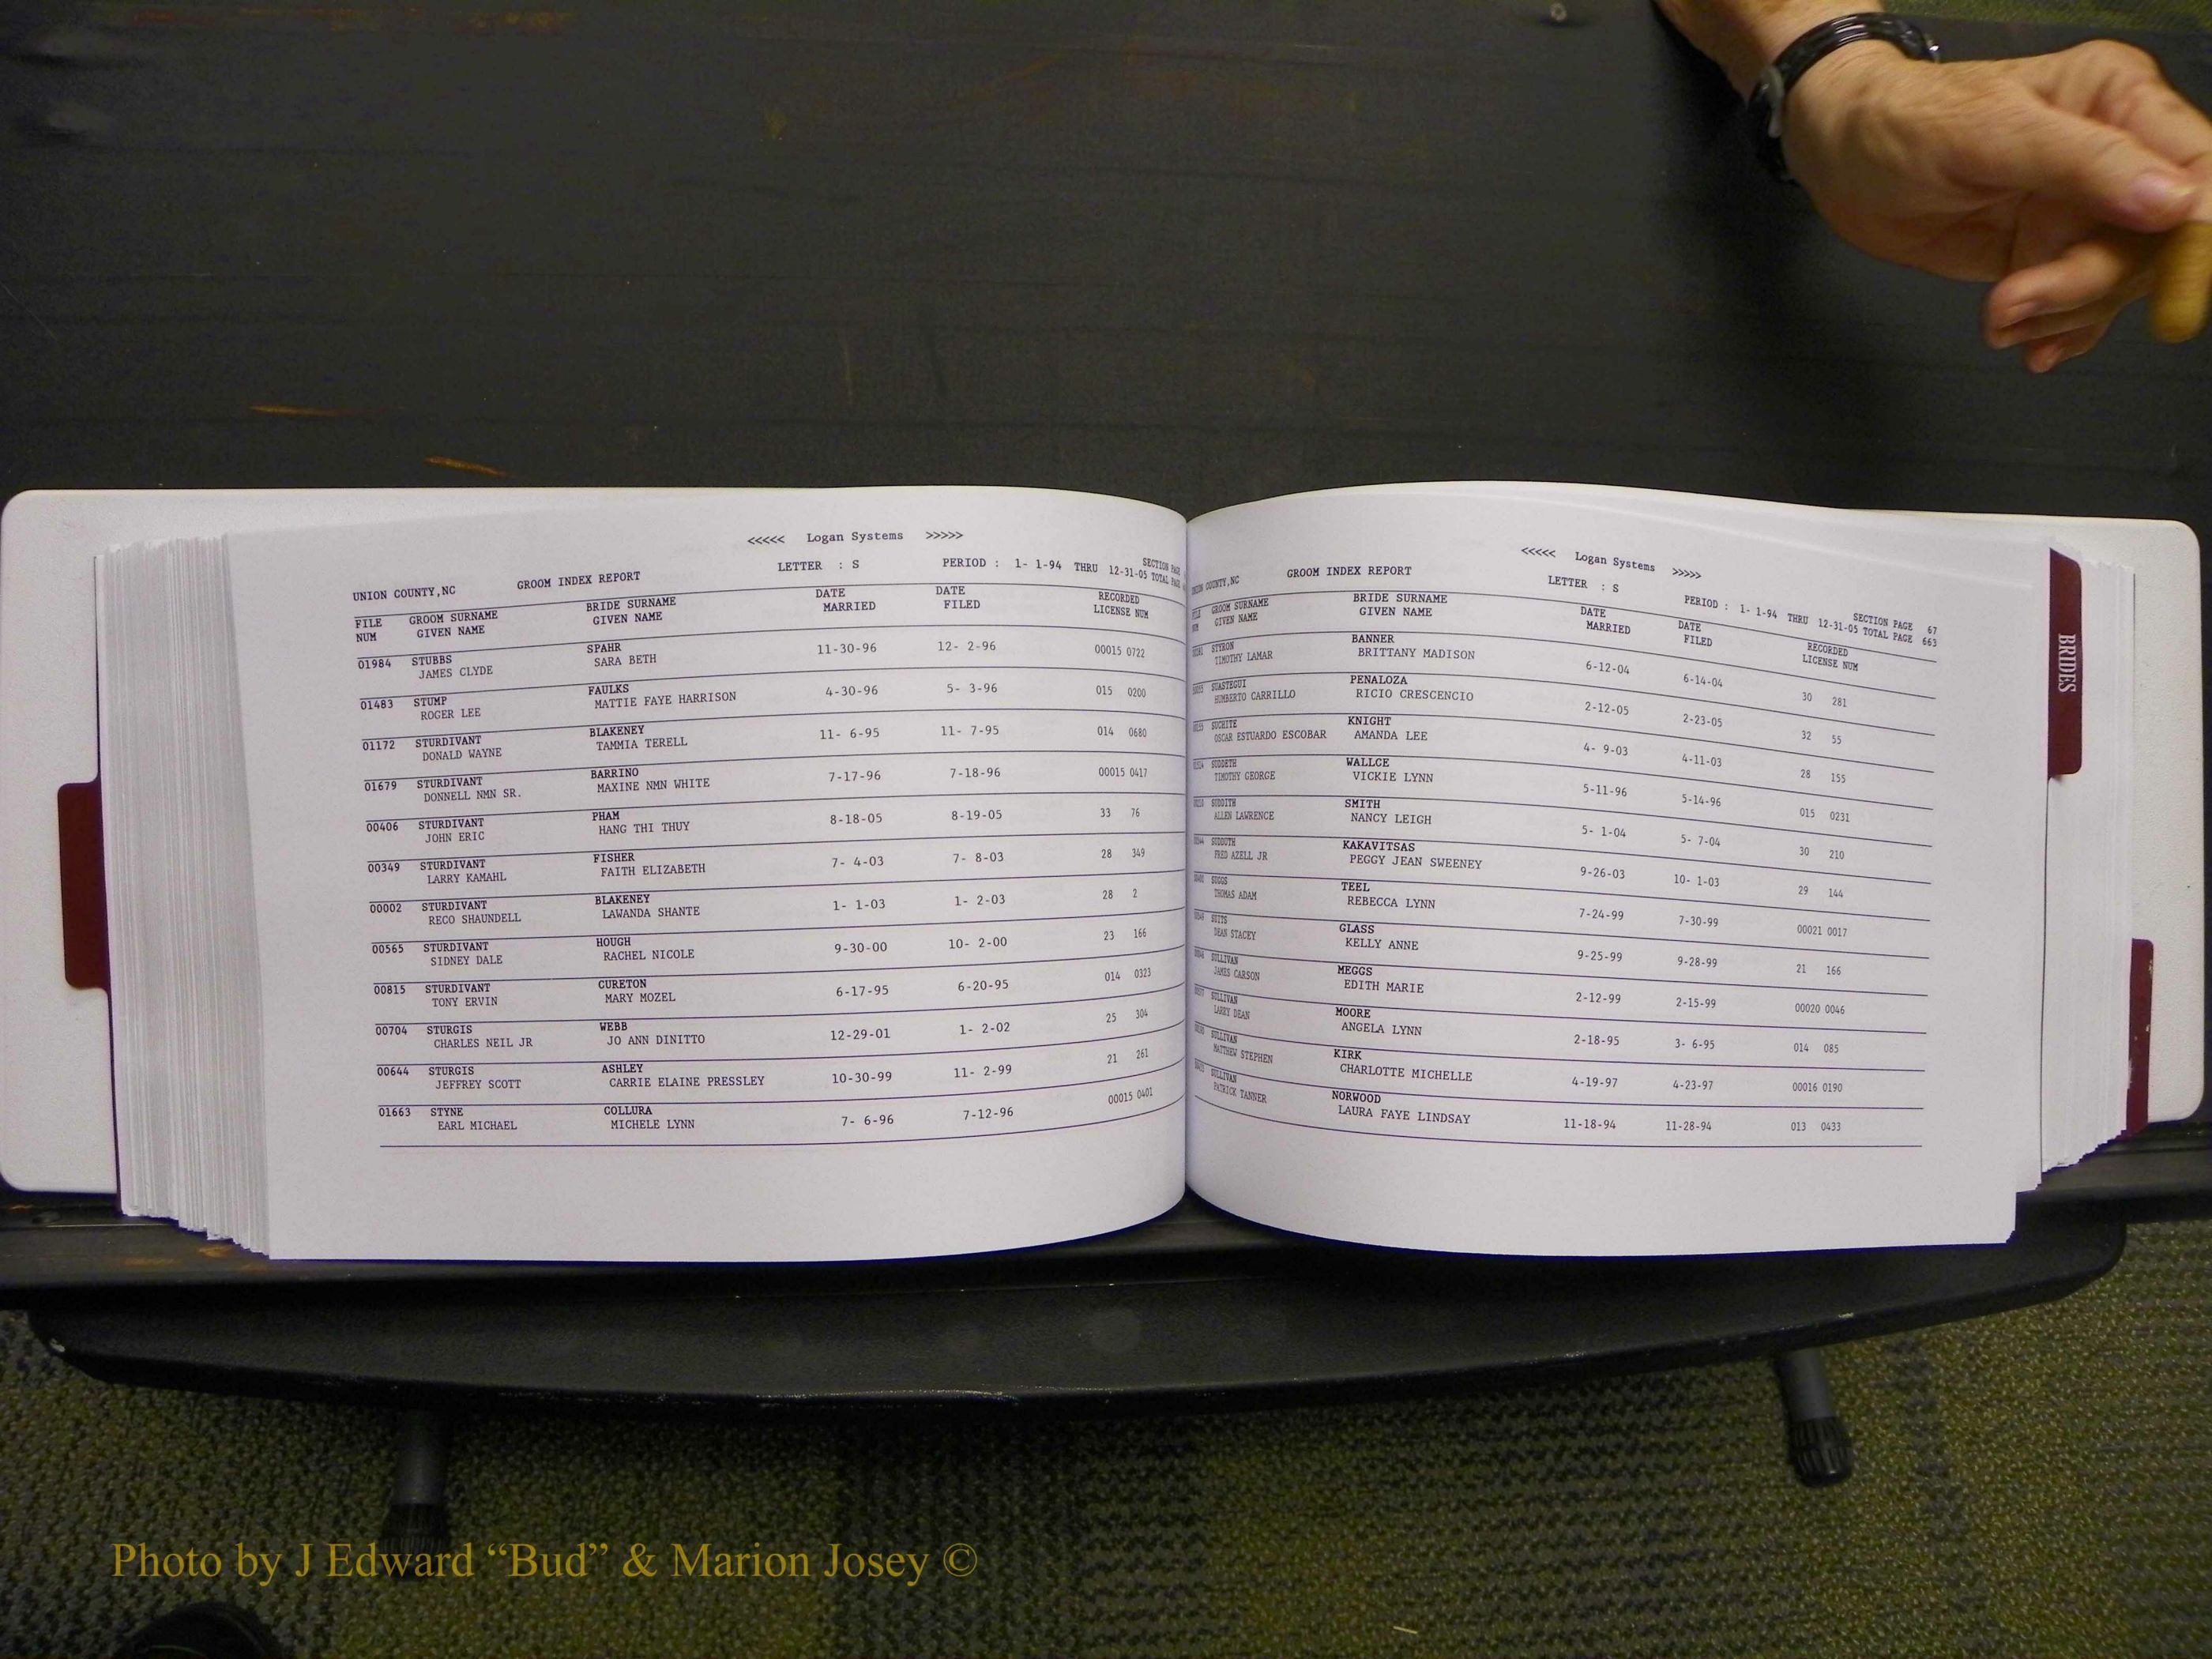 <<<<< Logan Systems >>>>>
UNION COUNTY,NC GROOM INDEX REPORT LETTER : S PERIOD : 1- 1-94 THRU 12-31-05 SECTION PAGE
TOTAL PAGE
FILE GROOM SURNAME BRIDE SURNAME DATE DATE RECORDED
NUM GIVEN NAME GIVEN NAME MARRIED FILED LICENSE NUM
01984 STUBBS SPAHR 11-30-96 12- 2-96 00015 0722
JAMES CLYDE SARA BETH
01483 STUMP FAULKS 4-30-96 5- 3-96 015 0200
ROGER LEE MATTIE FAYE HARRISON
01172 STURDIVANT BLAKENEY 11- 6-95 11- 7-95 014 0680
DONALD WAYNE TAMMIA TERELL
01679 STURDIVANT BARRINO 7-17-96 7-18-96 00015 0417
DONNELL NMN SR. MAXINE NMN WHITE
00406 STURDIVANT PHAM 8-18-05 8-19-05 33 76
JOHN ERIC HANG THI THUY
00349 STURDIVANT FISHER 7- 4-03 7- 8-03 28 349
LARRY KAMAHL FAITH ELIZABETH
00002 STURDIVANT BLAKENEY 1- 1-03 1- 2-03 28 2
RECO SHAUNDELL LAWANDA SHANTE
00565 STURDIVANT HOUGH 9-30-00 10- 2-00 23 166
SIDNEY DALE RACHEL NICOLE
00815 STURDIVANT CURETON 6-17-95 6-20-95 014 0323
TONY ERVIN MARY MOZEL
00704 STURGIS WEBB 12-29-01 1- 2-02 25 304
CHARLES NEIL JR JO ANN DINITTO
00644 STURGIS ASHLEY 10-30-99 11- 2-99 21 261
JEFFREY SCOTT CARRIE ELAINE PRESSLEY
01663 STYNE COLLURA 7- 6-96 7-12-96 00015 0401
EARL MICHAEL MICHELE LYNN
<<<<< Logan Systems >>>>>
UNION COUNTY,NC GROOM INDEX REPORT LETTER : S PERIOD : 1- 1-94 THRU 12-31-05 SECTION PAGE 67
TOTAL PAGE 663
FILE GROOM SURNAME BRIDE SURNAME DATE DATE RECORDED
NUM GIVEN NAME GIVEN NAME MARRIED FILED LICENSE NUM
STYRON BANNER 6-12-04 6-14-04 30 281
TIMOTHY LAMAR BRITTANY MADISON
SUASTEGUI PENALOZA 2-12-05 2-23-05 32 55
HUMBERTO CARRILLO RICIO CRESCENCIO
SUCHITE KNIGHT 4- 9-03 4-11-03 28 155
OSCAR ESTUARDO ESCOBAR AMANDA LEE
SUDDETH WALLCE 5-11-96 5-14-96 015 0231
TIMOTHY GEORGE VICKIE LYNN
SUDDITH SMITH 5- 1-04 5- 7-04 30 210
ALLEN LAWRENCE NANCY LEIGH
SUDDUTH KAKAVITSAS 9-26-03 10- 1-03 29 144
FRED AZELL JR PEGGY JEAN SWEENEY
SUGGS TEEL 7-24-99 7-30-99 00021 0017
THOMAS ADAM REBECCA LYNN
SUITS GLASS 9-25-99 9-28-99 21 166
DEAN STACEY KELLY ANNE
SULLIVAN MEGGS 2-12-99 2-15-99 00020 0046
JAMES CARSON EDITH MARIE
SULLIVAN MOORE 2-18-95 3- 6-95 014 085
LARRY DEAN ANGELA LYNN
SULLIVAN KIRK 4-19-97 4-23-97 00016 0190
MATTHEW STEPHEN CHARLOTTE MICHELLE
SULLIVAN NORWOOD 11-18-94 11-28-94 013 0433
PATRICK TANNER LAURA FAYE LINDSAY
BRIDES
Photo by J Edward “Bud” & Marion Josey ©